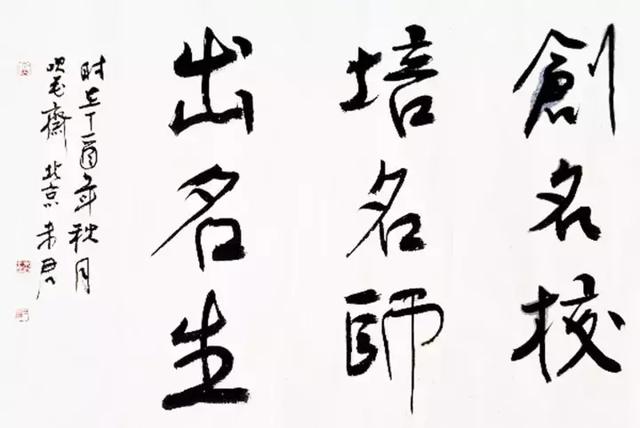 創名校
培名師
出名生
时在丁酉年秋月
吹毛齋北京未君